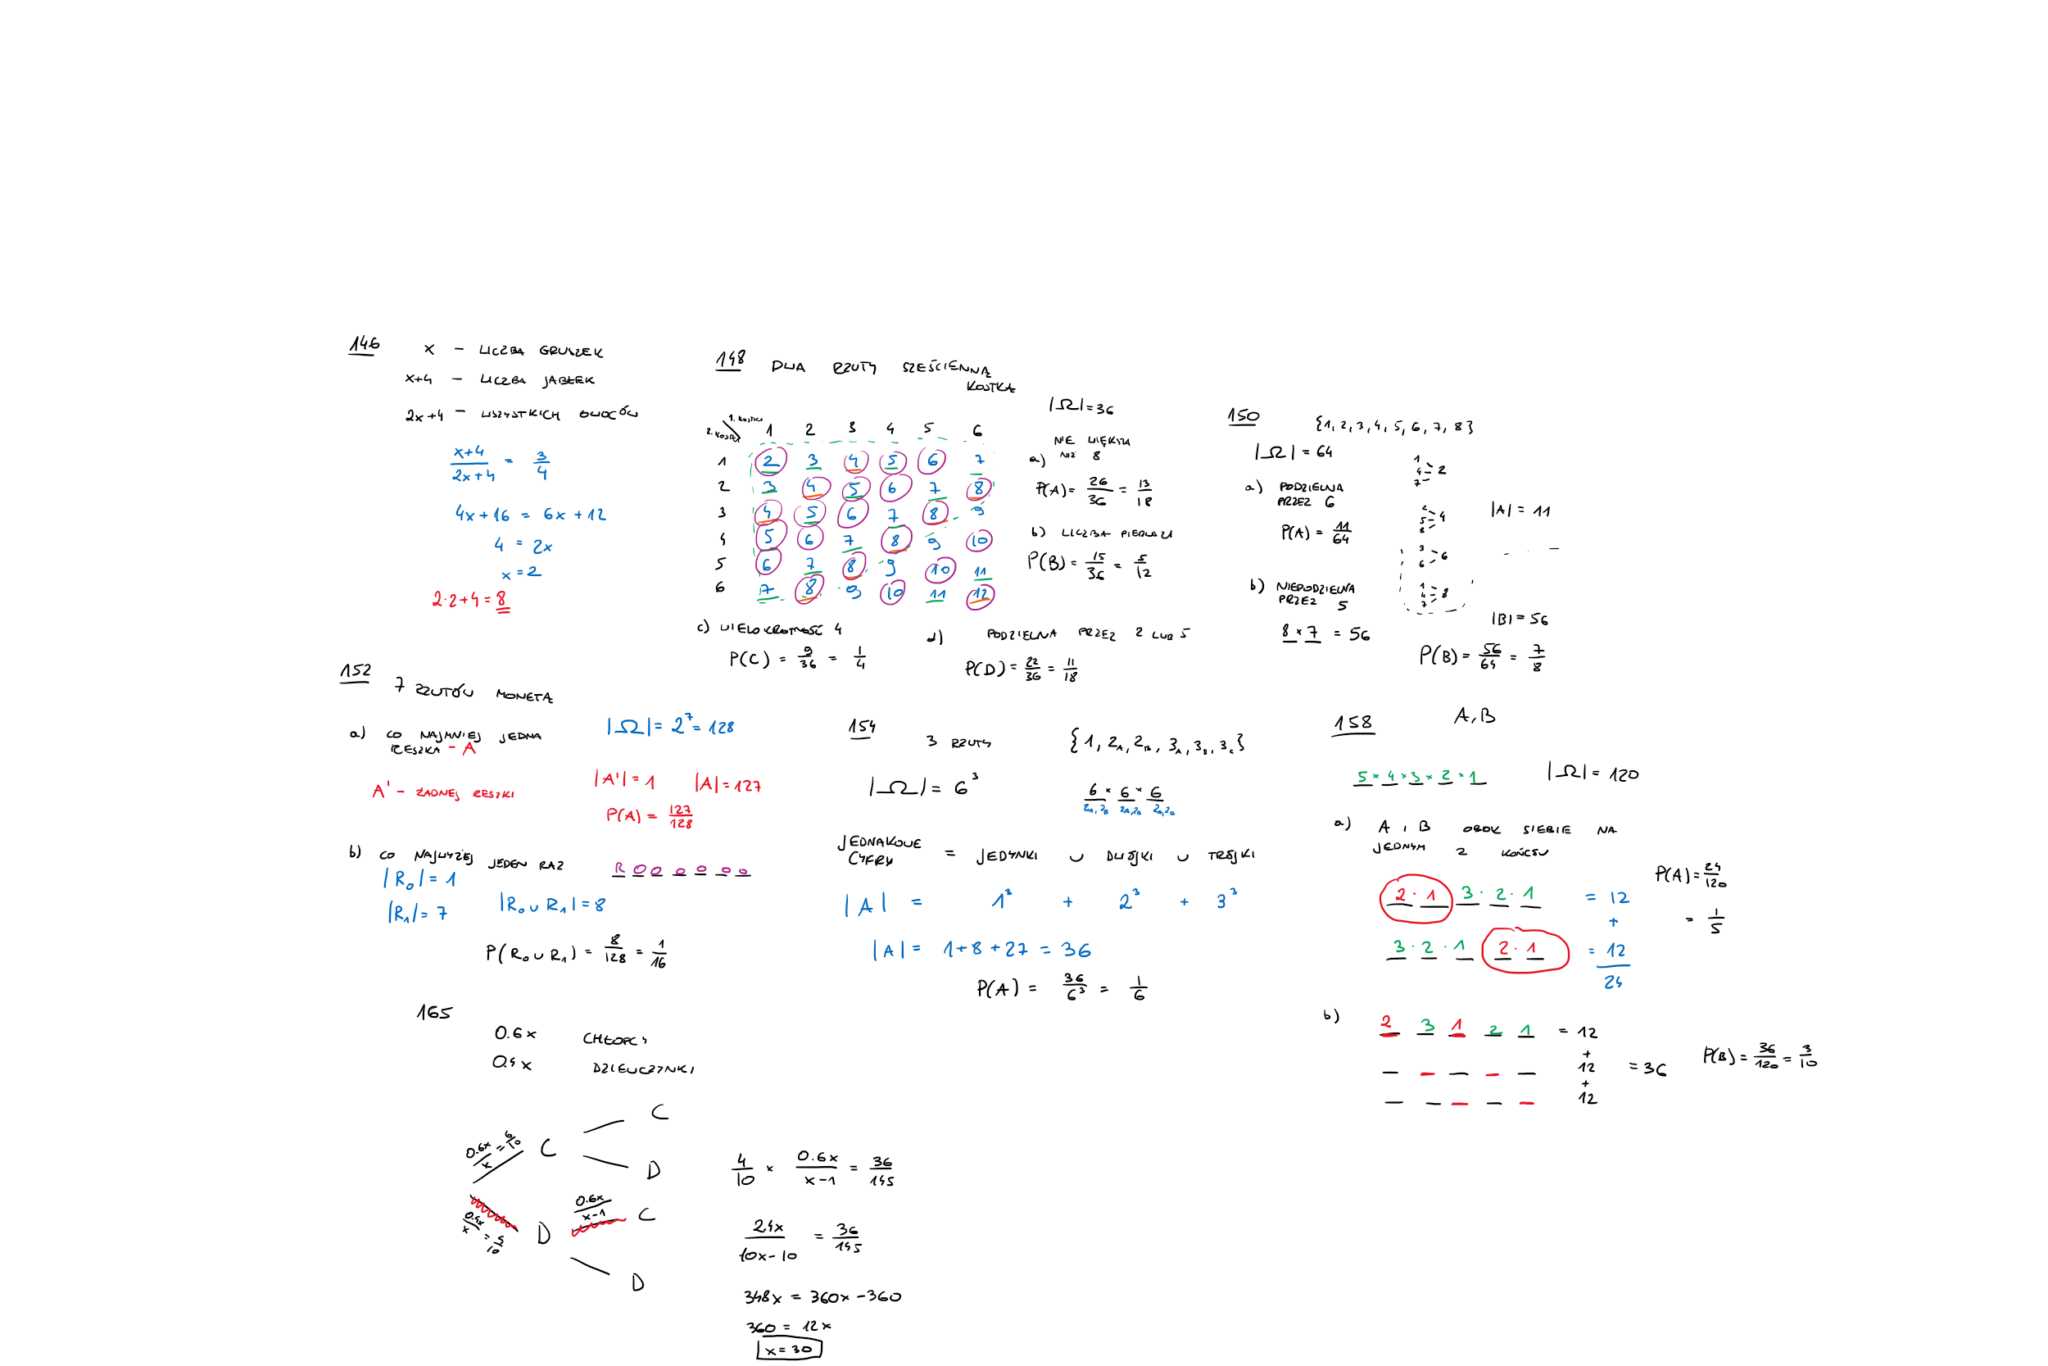 146
x – LICZBA GRUSZEK
x+4 – LICZBA JABŁEK
2x+4 – WSZYSTKICH OWOCÓW
x+4/2x+4 = 3/4
4x+16 = 6x+12
4 = 2x
x=2
2·2+4=8
148 DWA RZUTY SZEŚCIENNĄ
KOSTKĄ
1 2 3 4 5 6
1 2 3 4 5 6 7
2 3 4 5 6 7 8
3 4 5 6 7 8 9
4 5 6 7 8 9 10
5 6 7 8 9 10 11
6 7 8 9 10 11 12
|Ω|=36
a) NIE WIĘKSZA
NIŻ 8
P(A)= 26/36 = 13/18
b) LICZBA PIERWSZA
P(B)= 15/36 = 5/12
c) WIELOKROTNOŚĆ 4
P(C) = 9/36 = 1/4
d) PODZIELNA PRZEZ 2 LUB 5
P(D)= 22/36 = 11/18
150
{1,2,3,4,5,6,7,8}
|Ω| = 64
a) PODZIELNA
PRZEZ 6
P(A) = 11/64
|A| = 11
b) NIEPODZIELNA
PRZEZ 5
8 × 7 = 56
|B|=56
P(B)= 56/64 = 7/8
152
7 RZUTÓW MONETĄ
|Ω|= 2⁷=128
a) CO NAJMNIEJ JEDNA
RESZKA – A
A' – ŻADNEJ RESZKI
|A'|=1 |A|=127
P(A) = 127/128
b) CO NAJWYŻEJ JEDEN RAZ
R O O O O O O
|R₀|=1
|R₁|=7 |R₀∪R₁|=8
P(R₀∪R₁) = 8/128 = 1/16
154
3 RZUTY
{1, 2A, 2B, 3A, 3B, 3C}
|Ω|= 6³
6 × 6 × 6
2A,2B 2A,2B 2A,2B
JEDNAKOWE
CYFRY = JEDYNKI ∪ DWÓJKI ∪ TRÓJKI
|A| = 1³ + 2³ + 3³
|A| = 1+8+27 = 36
P(A) = 36/6³ = 1/6
158 A,B
5×4×3×2×1
|Ω|= 120
a) A I B OBOK SIEBIE NA
JEDNYM Z KOŃCÓW
2·1 3·2·1 = 12
+
3·2·1 2·1 = 12
24
P(A)= 24/120
= 1/5
b) 2 3 1 2 1 = 12
+
12
+
12
= 36
P(B)= 36/120 = 3/10
165
0.6x CHŁOPCY
0.4x DZIEWCZYNKI
0.6x/x = 6/10
C
C
D
0.4x/x = 4/10
D
0.6x/x-1
C
D
4/10 × 0.6x/x-1 = 36/145
2.4x/10x-10 = 36/145
348x = 360x-360
360 = 12x
x=30